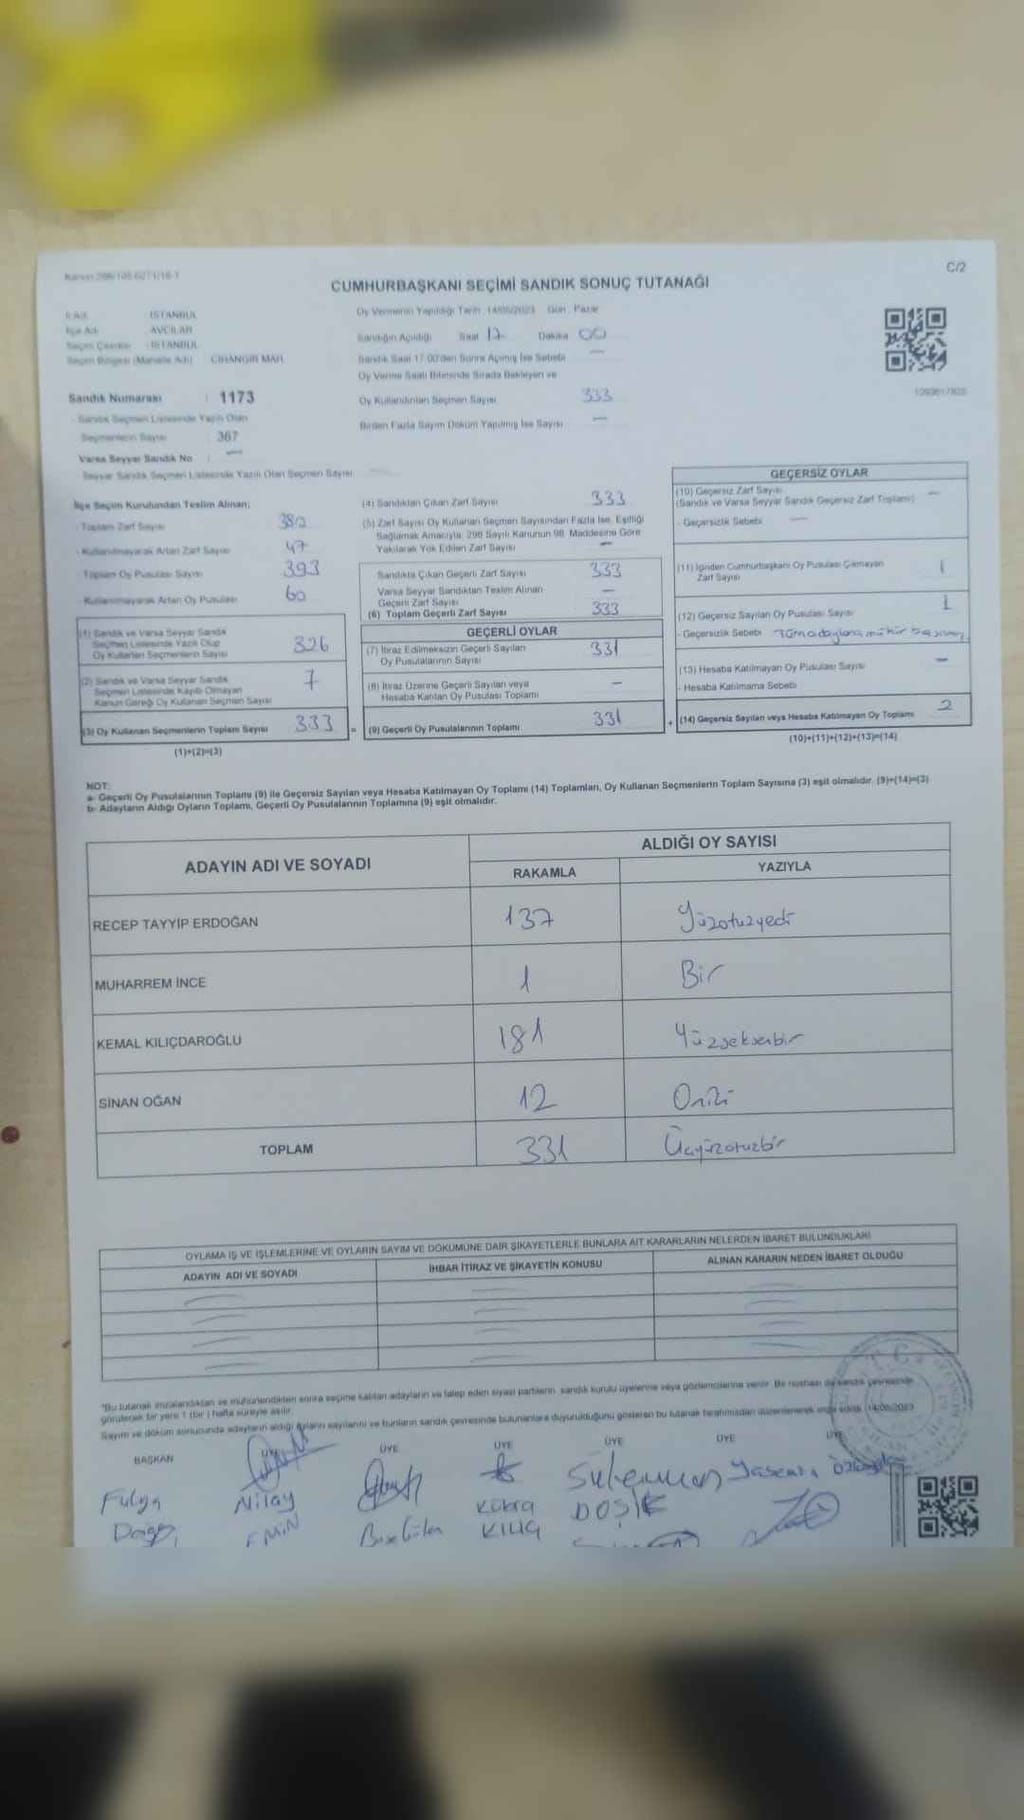 C/2
CUMHURBAŞKANI SEÇİMİ SANDIK SONUÇ TUTANAĞI
İl Adı : İSTANBUL
İlçe Adı : AVCILAR
Seçim Çevresi : İSTANBUL
Seçim Bölgesi (Mahalle Adı) : CİHANGİR MAH.
Sandık Numarası : 1173
Sandık Seçmen Listesinde Yazılı Olan
Seçmenlerin Sayısı : 367
Varsa Seyyar Sandık No : —
Seyyar Sandık Seçmen Listesinde Yazılı Olan Seçmen Sayısı : —
Oy Vermenin Yapıldığı Tarih : 14/05/2023 Gün : Pazar
Sandığın Açıldığı Saat 17 Dakika 00
Sandık Saat 17:00'den Sonra Açılmış İse Sebebi —
Oy Verme Saati Bitiminde Sırada Bekleyen ve
Oy Kullandırılan Seçmen Sayısı 333
Birden Fazla Sayım Döküm Yapılmış İse Sayısı —
İlçe Seçim Kurulundan Teslim Alınan;
- Toplam Zarf Sayısı 380
- Kullanılmayarak Artan Zarf Sayısı 47
- Toplam Oy Pusulası Sayısı 393
- Kullanılmayarak Artan Oy Pusulası 60
(1) Sandık ve Varsa Seyyar Sandık
Seçmen Listesinde Yazılı Olup
Oy Kullanan Seçmenlerin Sayısı 326
(2) Sandık ve Varsa Seyyar Sandık
Seçmen Listesinde Kayıtlı Olmayan
Kanun Gereği Oy Kullanan Seçmen Sayısı 7
(3) Oy Kullanan Seçmenlerin Toplam Sayısı 333
(1)+(2)=(3)
(4) Sandıktan Çıkan Zarf Sayısı 333
(5) Zarf Sayısı Oy Kullanan Seçmen Sayısından Fazla İse, Eşitliği
Sağlamak Amacıyla, 298 Sayılı Kanunun 98. Maddesine Göre
Yakılarak Yok Edilen Zarf Sayısı —
Sandıkta Çıkan Geçerli Zarf Sayısı 333
Varsa Seyyar Sandıktan Teslim Alınan
Geçerli Zarf Sayısı —
(6) Toplam Geçerli Zarf Sayısı 333
GEÇERLİ OYLAR
(7) İtiraz Edilmeksizin Geçerli Sayılan
Oy Pusulalarının Sayısı 331
(8) İtiraz Üzerine Geçerli Sayılan veya
Hesaba Katılan Oy Pusulası Toplamı —
= (9) Geçerli Oy Pusulalarının Toplamı 331
GEÇERSİZ OYLAR
(10) Geçersiz Zarf Sayısı
(Sandık ve Varsa Seyyar Sandık Geçersiz Zarf Toplamı) —
- Geçersizlik Sebebi —
(11) İçinden Cumhurbaşkanı Oy Pusulası Çıkmayan
Zarf Sayısı 1
(12) Geçersiz Sayılan Oy Pusulası Sayısı 1
- Geçersizlik Sebebi Tüm adaylara mühür basılmış
(13) Hesaba Katılmayan Oy Pusulası Sayısı —
- Hesaba Katılmama Sebebi
+ (14) Geçersiz Sayılan veya Hesaba Katılmayan Oy Toplamı 2
(10)+(11)+(12)+(13)=(14)
NOT:
a- Geçerli Oy Pusulalarının Toplamı (9) ile Geçersiz Sayılan veya Hesaba Katılmayan Oy Toplamı (14) Toplamları, Oy Kullanan Seçmenlerin Toplam Sayısına (3) eşit olmalıdır. (9)+(14)=(3)
b- Adayların Aldığı Oyların Toplamı, Geçerli Oy Pusulalarının Toplamına (9) eşit olmalıdır.
ADAYIN ADI VE SOYADI ALDIĞI OY SAYISI
RAKAMLA YAZIYLA
RECEP TAYYİP ERDOĞAN 137 Yüzotuzyedi
MUHARREM İNCE 1 Bir
KEMAL KILIÇDAROĞLU 181 Yüzseksenbir
SİNAN OĞAN 12 Oniki
TOPLAM 331 Üçyüzotuzbir
OYLAMA İŞ VE İŞLEMLERİNE VE OYLARIN SAYIM VE DÖKÜMÜNE DAİR ŞİKAYETLERLE BUNLARA AİT KARARLARIN NELERDEN İBARET BULUNDUKLARI
ADAYIN ADI VE SOYADI İHBAR İTİRAZ VE ŞİKAYETİN KONUSU ALINAN KARARIN NEDEN İBARET OLDUĞU
"Bu tutanak imzalandıktan ve mühürlendikten sonra seçime katılan adayların ve talep eden siyasi partilerin, sandık kurulu üyelerine veya gözlemcilerine verilir. Bir nüshası da sandık çevresinde
görülecek bir yere 1 (bir) hafta süreyle asılır.
Sayım ve döküm sonucunda adayların aldığı oyların sayılarını ve bunların sandık çevresinde bulunanlara duyurulduğunu gösteren bu tutanak tarafımızdan düzenlenerek imza edildi. 14/05/2023
BAŞKAN ÜYE ÜYE ÜYE ÜYE ÜYE ÜYE
Fulya Nilay Kübra Süleyman Yasemin
EMİN KILIÇ